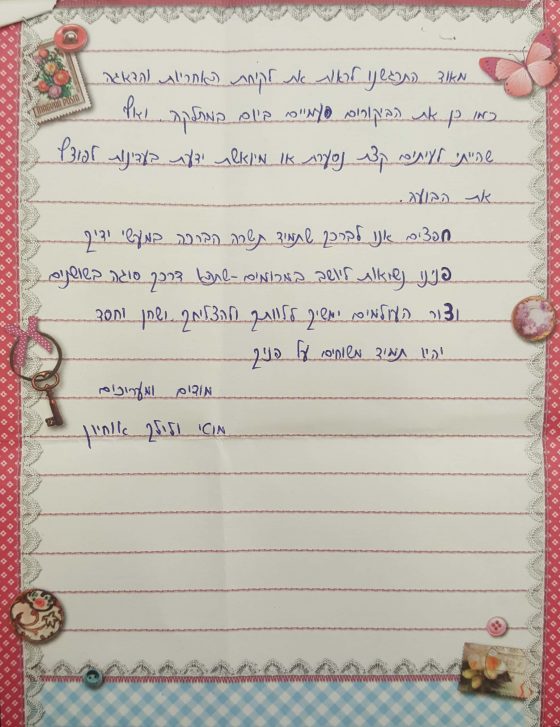 מאוד התרגשנו לראות את לקיחת האחריות והדאגה
כמו כן את הביקורים פעמיים ביום במחלקה. ואיך
שהייתי לעיתים קצת נסערת או מיואשת ידעת בעדינות לפוצץ
את הבועה.
חפצים אנו לברכך שתמיד תשרה הברכה במעשי ידיך
פנינו נשיאות ליושב במרומים - שתהא דרכך סוגה בשושנים
וצור העולמים ימשיך ללוותך ולהצליחך. ושחן וחסד
יהיו תמיד משוחים על פניך
מודים ומעריכים
מוטי ולילך אוחיון